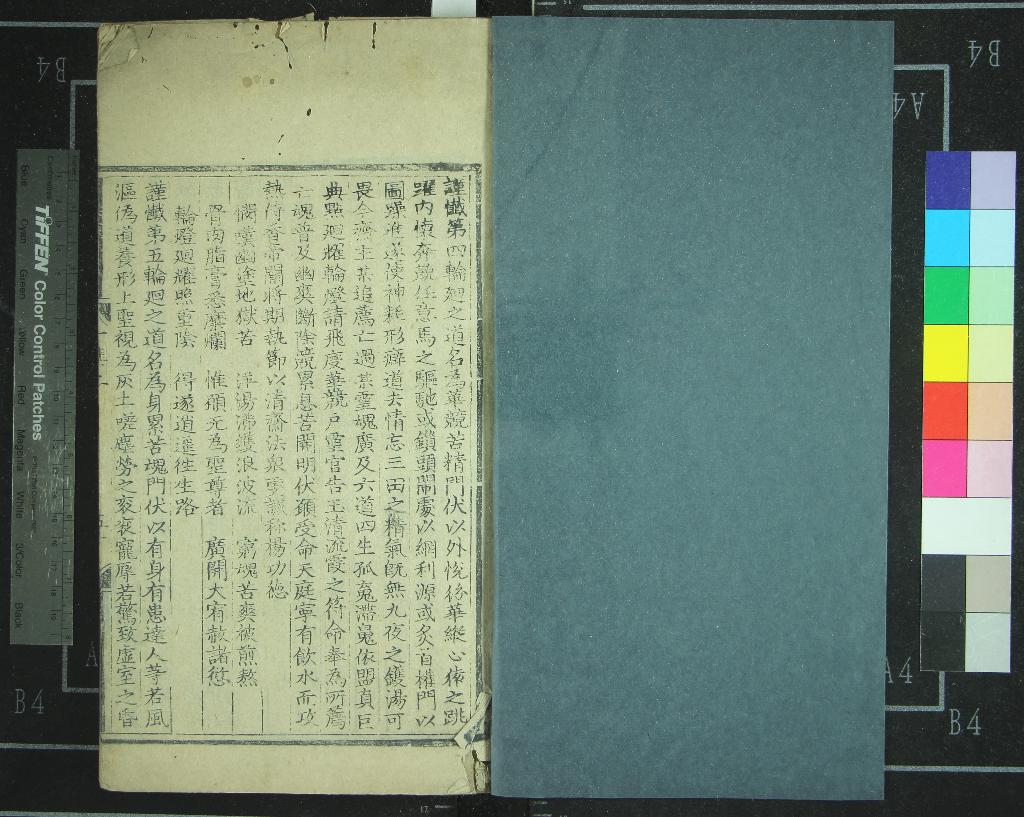 謹懺第四輪廻之道名為華競苦精門伏以外悅紛華縱心猿之跳
躍内懷奔激任意馬之驅馳或鎖頭鬧處以網利源或炙首權門以
圖躁進遂使神耗形癠道去情忘三田之精氣既無九夜之鑊湯可
畏今齋主某追薦亡過某靈魂廣及六道四生孤寃滯鬼依盟真巨
典點廻耀輪燈請飛度華競户靈官告玉清流霞之符命奉為所薦
亡魂普及幽爽斷除競累息苦開明伏願受命天庭寧有飲水而攻
熱侍香帝闕將期執節以清齋法衆虔誠称揚功德
憫嘆幽塗地獄苦 洋湯沸鑊浪波流 窮魂苦爽被煎熬
骨肉脂膏悉糜爛 惟願元為聖尊者 廣開大宥赦諸愆
輪燈廻耀照重陰 得遂逍遥徃生路
謹懺第五輪廻之道名為身累苦塊門伏以有身有患達人等若風
漚偽道養形上聖視為灰土嗟塵勞之衮衮寵辱若驚致虛室之昏
B4
B4
A4
A4
B4
B4
TIFFEN Color Control Patches
Blue
Cyan
Green
Yellow
Red
Magenta
White
3/Color
Black